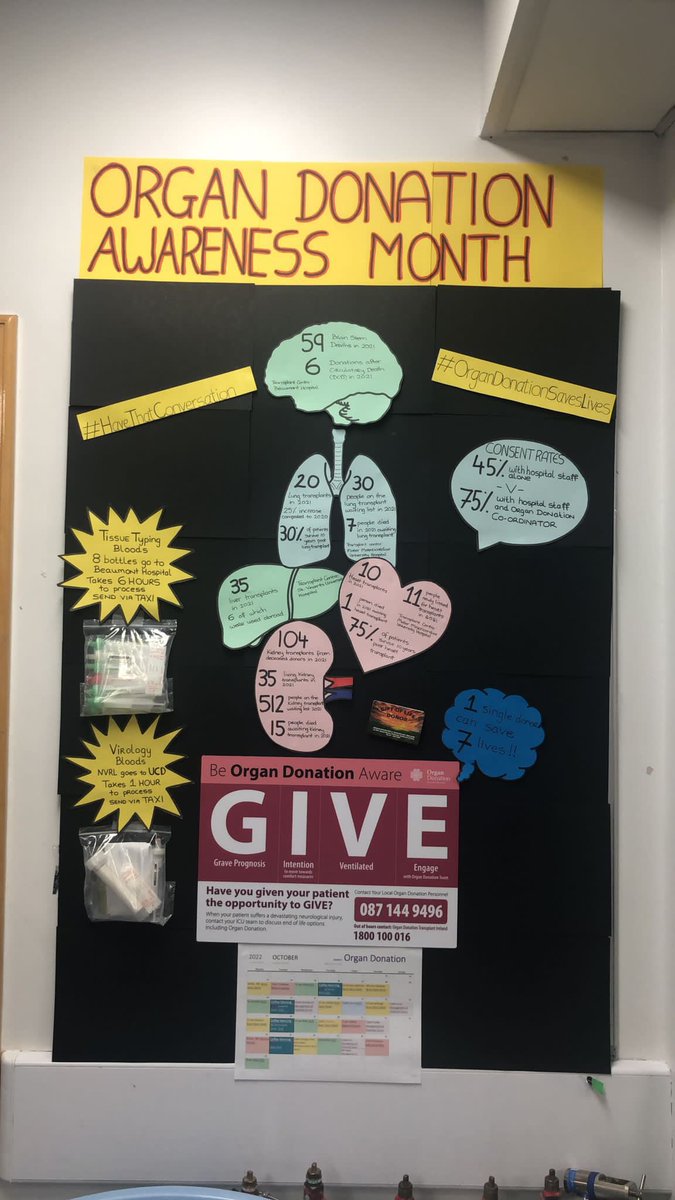 ORGAN DONATION
AWARENESS MONTH
#HaveThatConversation
#OrganDonationSavesLives
59 Brain Stem
Deaths in 2021
6 Donations after
Circulatory Death
(DCD) in 2021
Transplant Centre
Beaumont Hospital
CONSENT RATES
45% with hospital staff
alone
-V-
75% with hospital staff
and Organ Donation
CO-ORDINATOR
20
lung transplants
in 2021
25% increase
compared to 2020
30% of patients
survive 10
years post
lung transplant
30
people on the
lung transplant
waiting list in 2021
7 people died
in 2021 awaiting
lung transplant
Transplant centre
Mater Misericordiae
University Hospital
Tissue Typing
Bloods
8 bottles go to
Beaumont Hospital
Takes 6 HOURS
to process
SEND VIA TAXI
35
liver transplants
in 2021
6 of which
were used abroad
Transplant Centre
St. Vincents University
Hospital
10
heart transplants
in 2021
11 people
heart
transplants
in 2021
1 person died
in 2021 awaiting
heart transplant
Transplant Centre
Mater Misericordiae
University Hospital
75% of patients
survive 10 years
post heart
transplant
104
Kidney transplants from
deceased donors in 2021
35 living kidney
transplants in
2021
512 people on the
kidney transplant
waiting list 2021
15 people died
awaiting kidney
transplant in 2021
DONOR
1 single donor
can save
7 lives!!
Virology
Bloods
NVRL goes to UCD
Takes 1 HOUR
to process
SEND VIA TAXI
Be Organ Donation Aware
Organ
Donation
GIVE
Grave Prognosis
Intention
to move towards
comfort measures
Ventilated
Engage
with Organ Donation Team
Have you given your patient
the opportunity to GIVE?
When your patient suffers a devastating neurological injury,
contact your ICU team to discuss end of life options
including Organ Donation.
Contact Your Local Organ Donation Personnel
087 144 9496
Out of hours contact: Organ Donation Transplant Ireland
1800 100 016
2022 OCTOBER Organ Donation